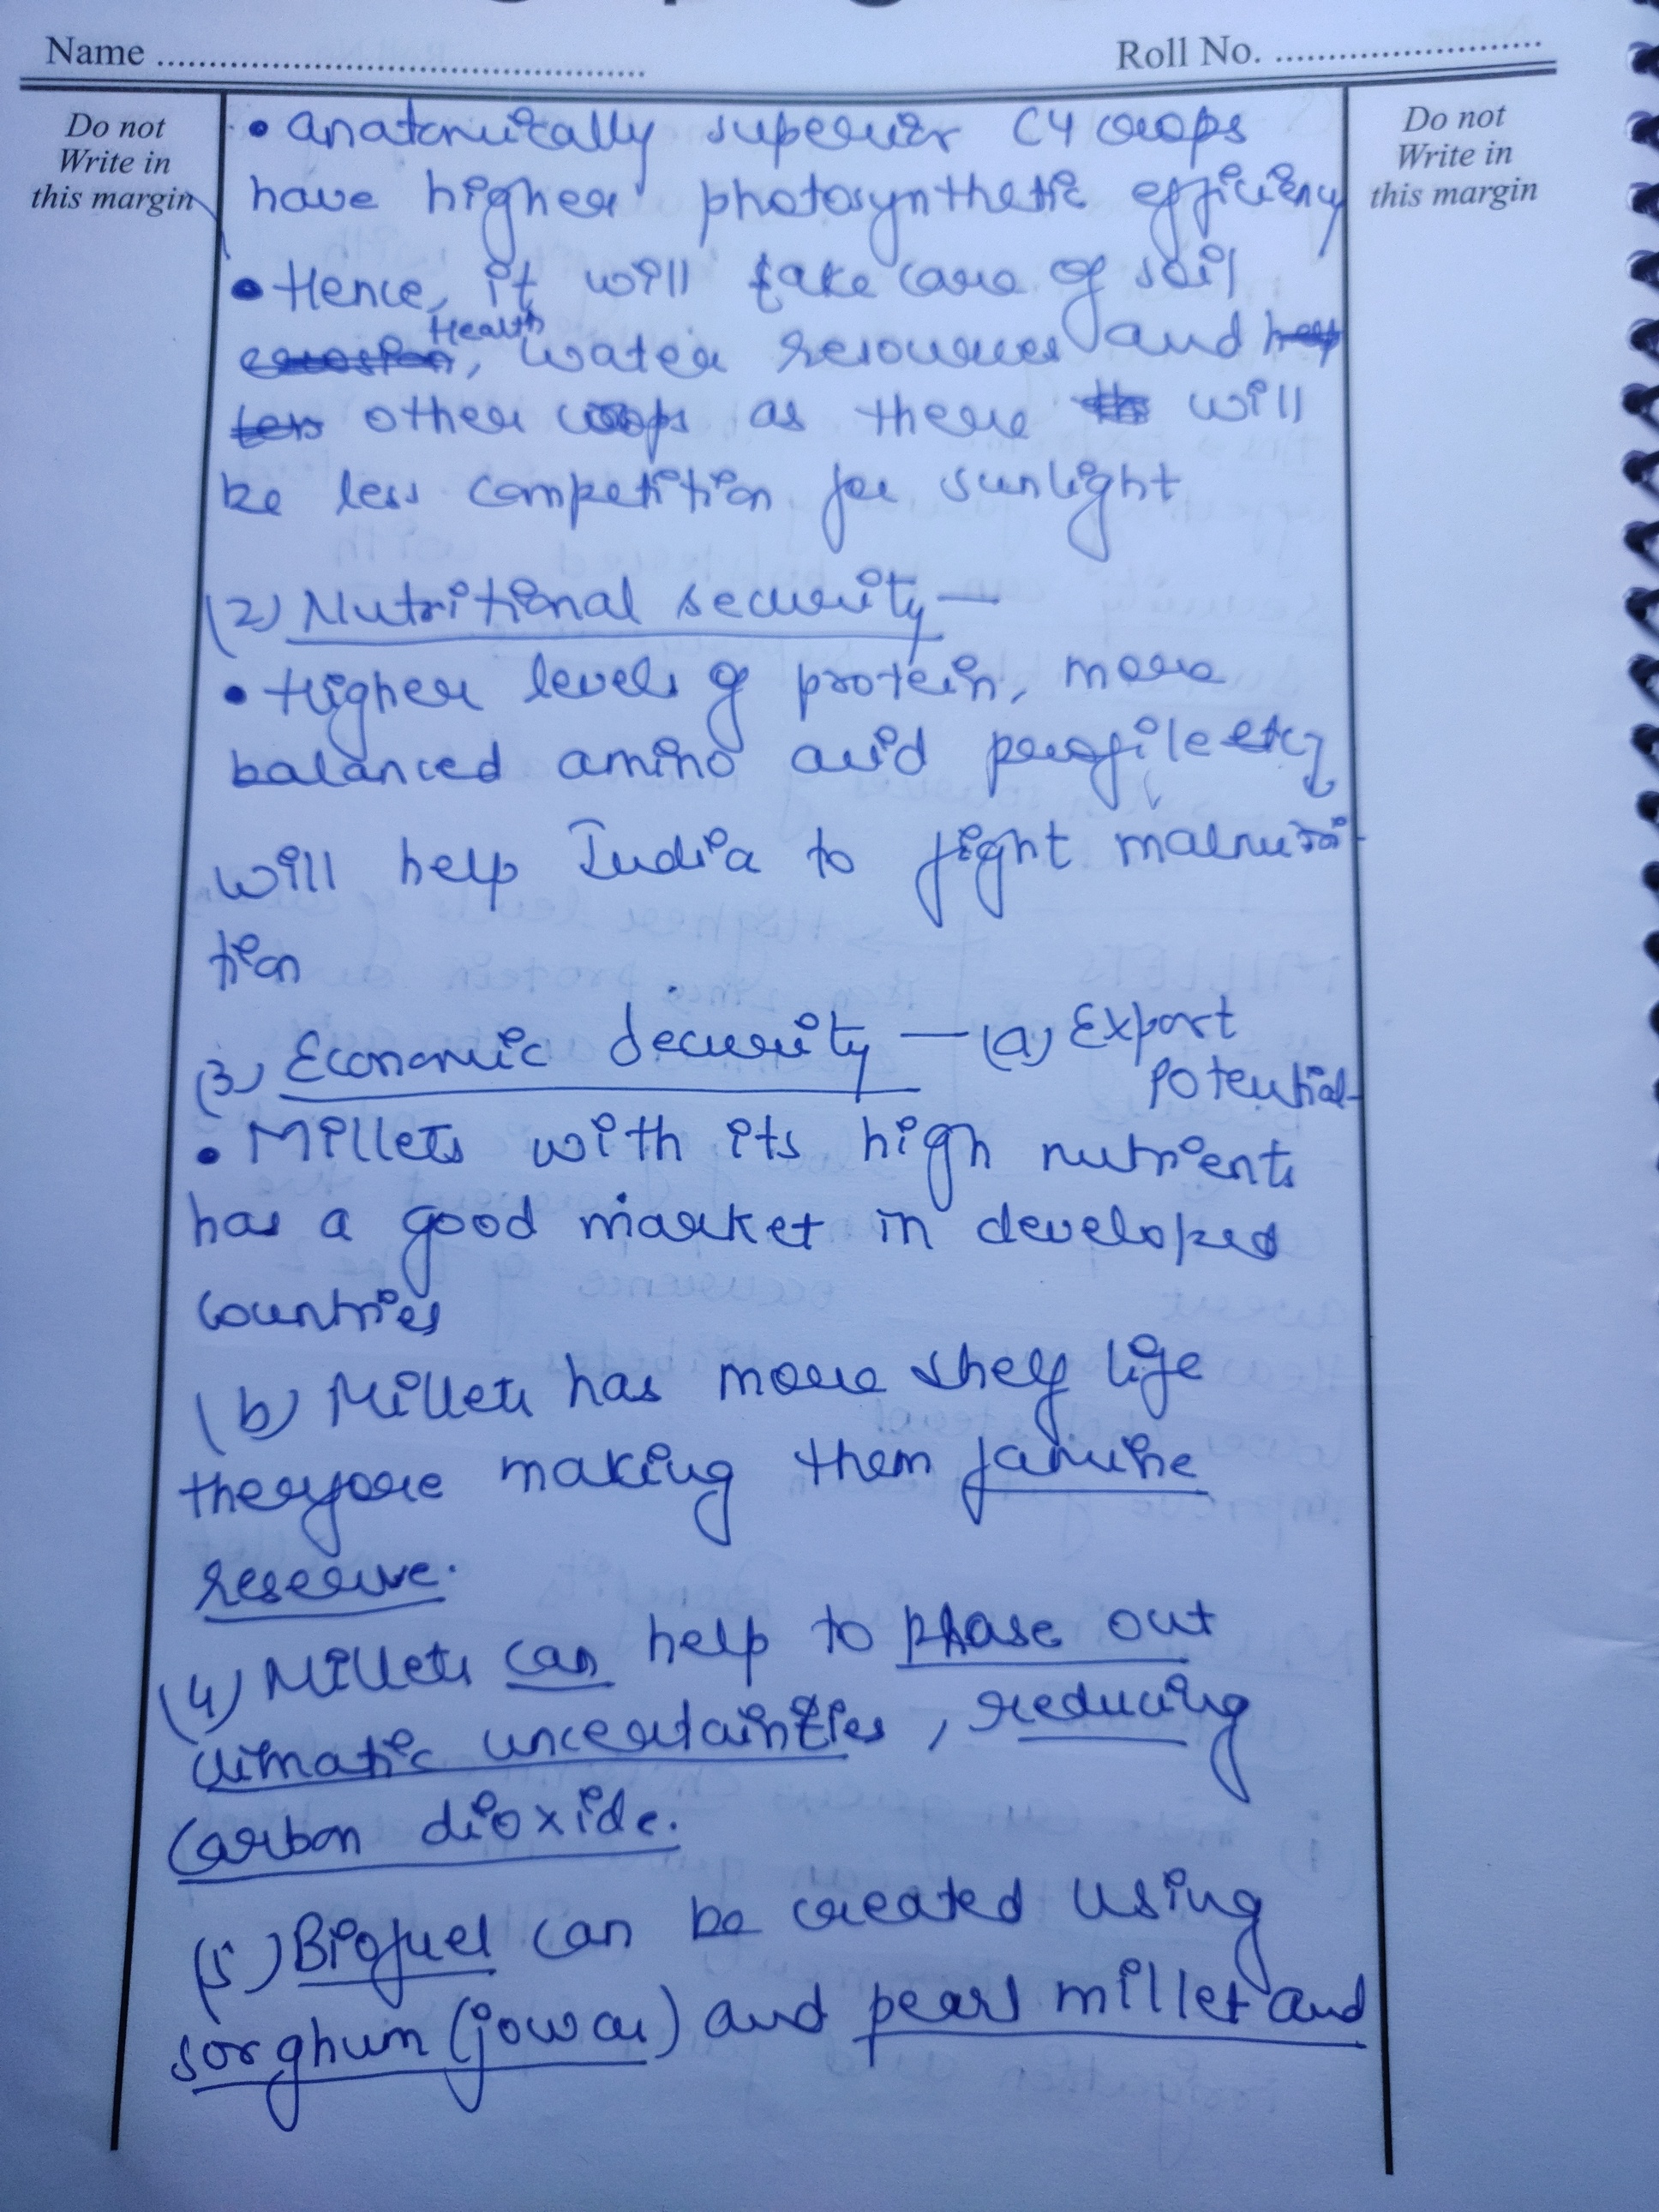 Name ........................................
Roll No. ........................
Do not
Write in
this margin
Do not
Write in
this margin
• anatomically superior C4 crops
have higher photosynthetic efficiency
• Hence, it will take care of soil
erosion Health, water resources and help
other crops as there will
be less competition for sunlight
(2) Nutritional security —
• Higher levels of protein, more
balanced amino acid profile etc
will help India to fight malnutri
tion
(3) Economic Security — (a) Export
Potential
• Millets with its high nutrients
has a good market in developed
countries
(b) Millets has more shelf life
therefore making them famine
reserve.
(4) Millets can help to phase out
climatic uncertainties, reducing
carbon dioxide.
(5) Biofuel can be created using
sorghum (jowar) and pearl millet and